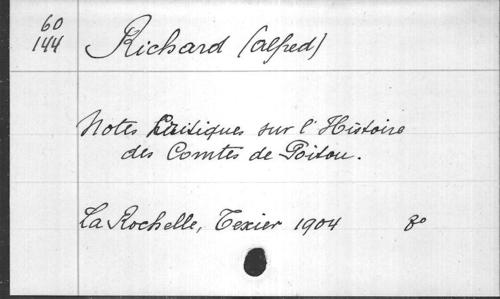 60
144
Richard (Alfred)
Notes Critiques sur l'Histoire
des Comtes de Poitou.
La Rochelle, Texier 1904 8º